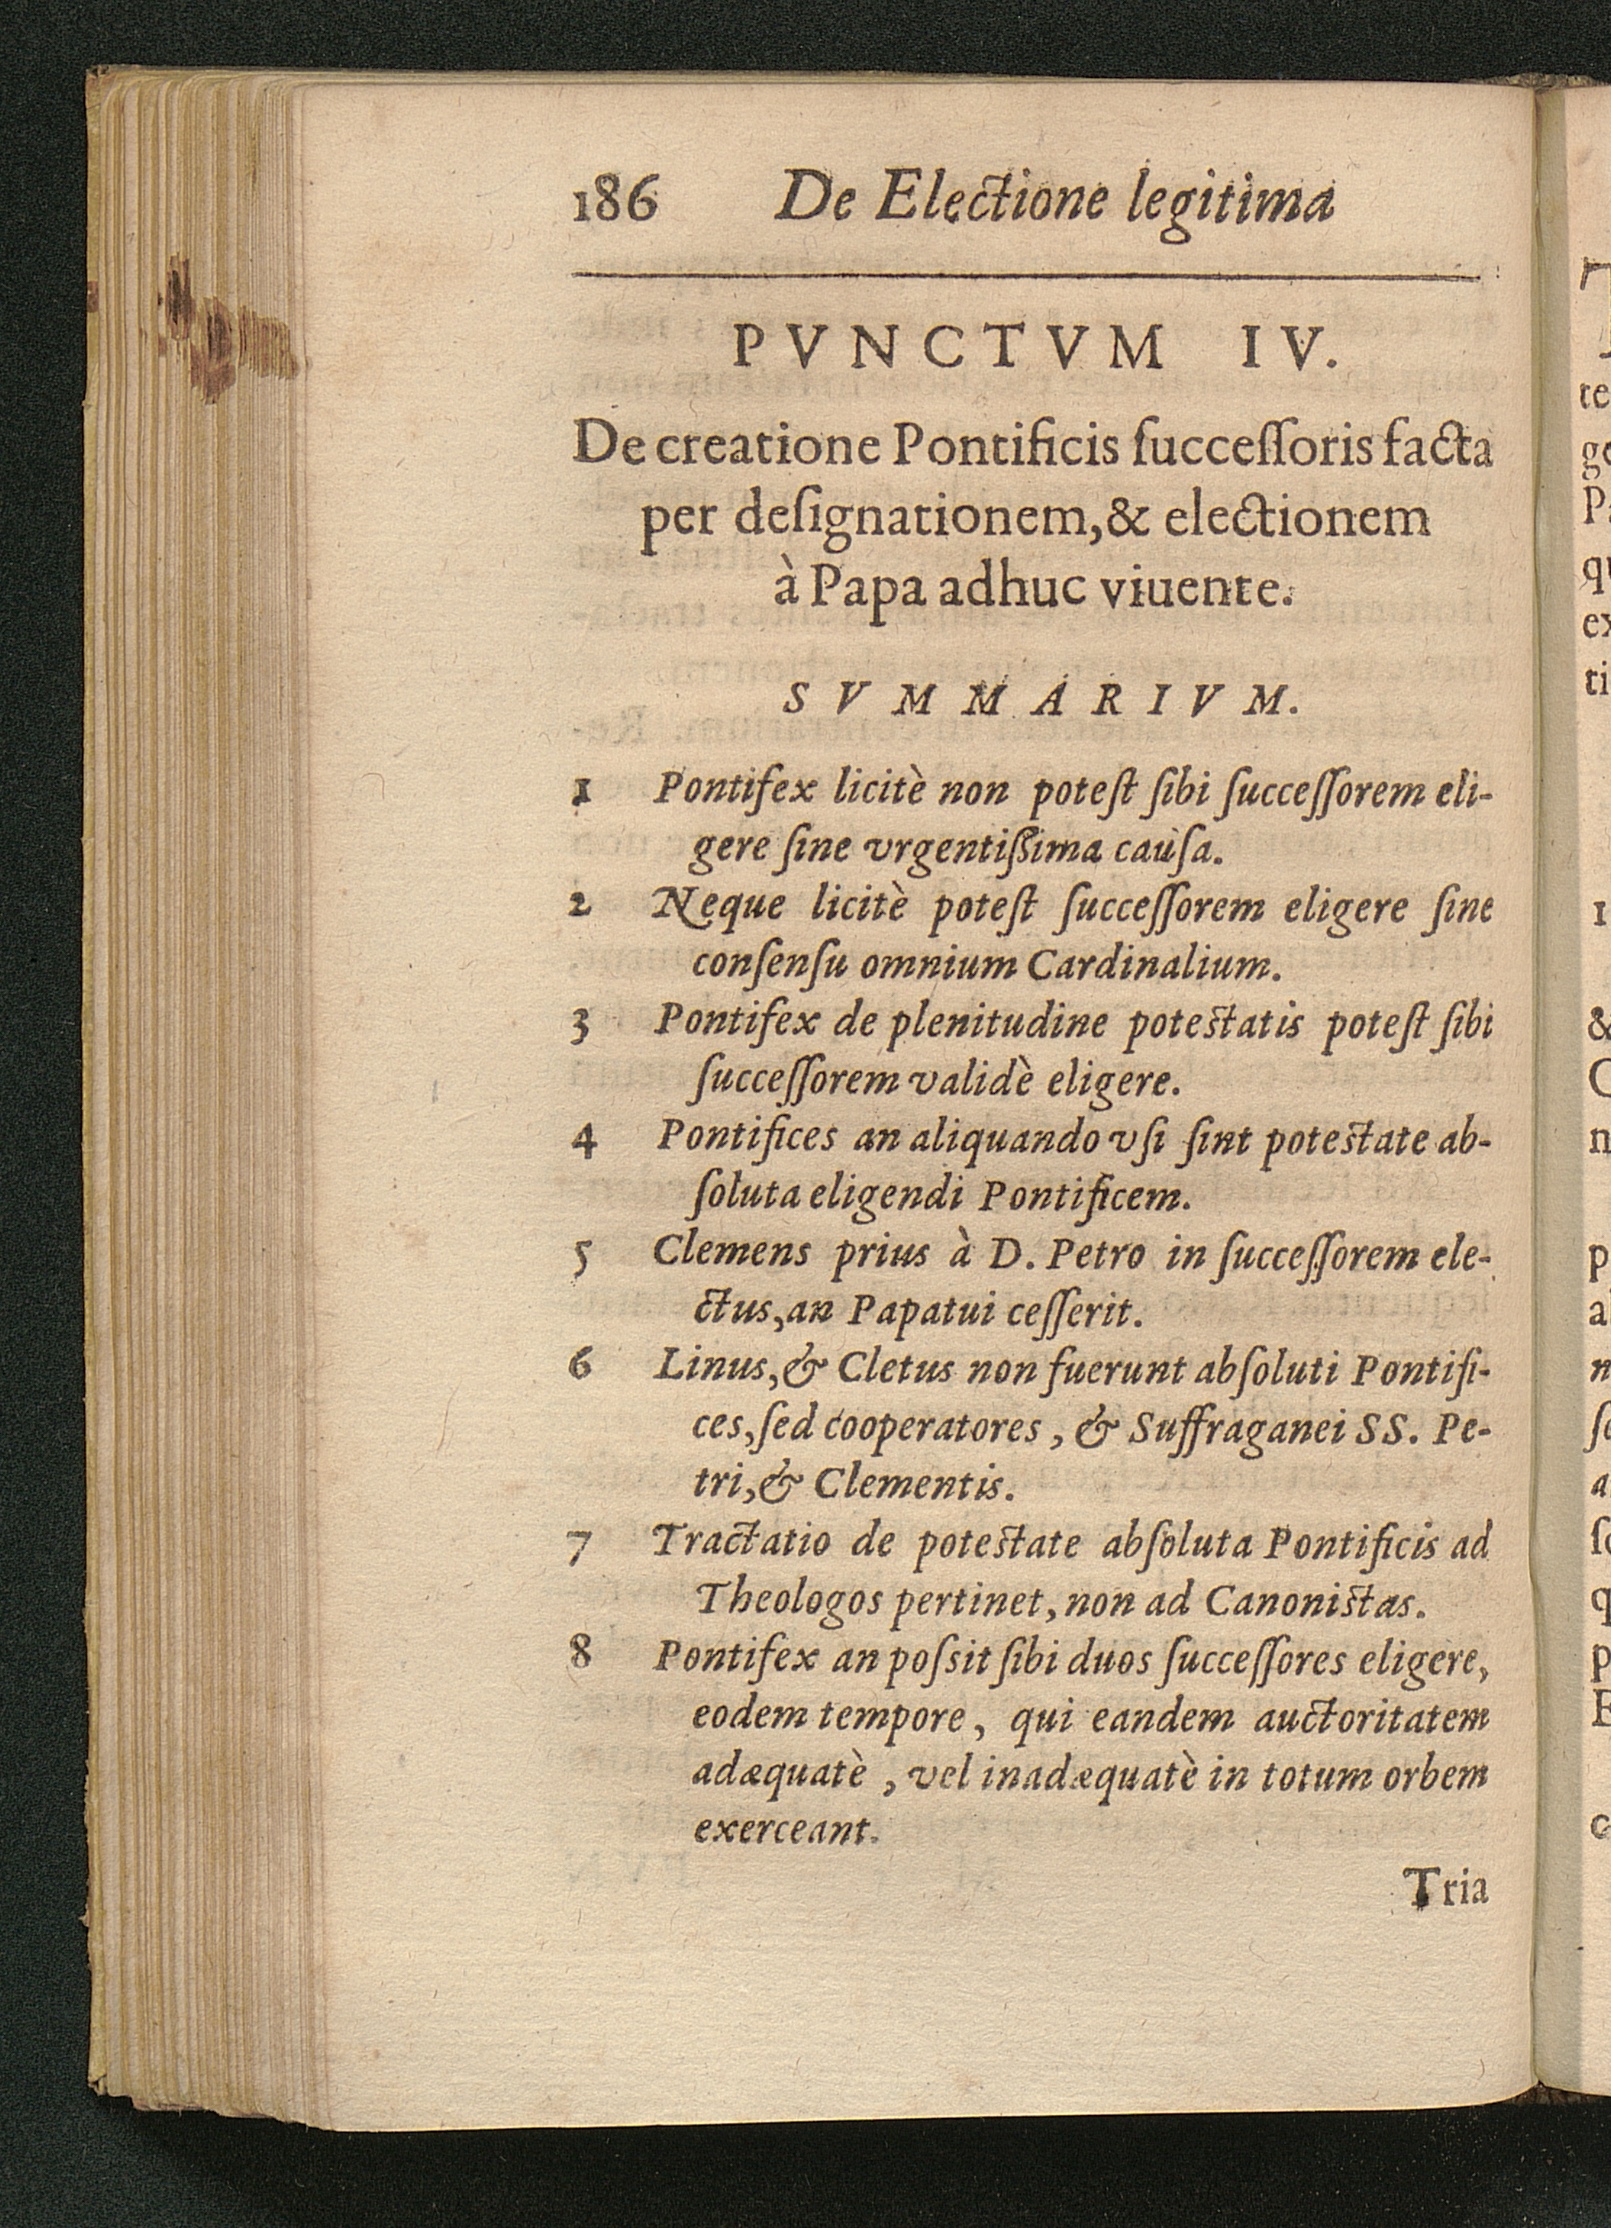 186 De Electione legitima
PVNCTVM IV.
De creatione Pontificis ſucceſſoris facta
per deſignationem,& electionem
à Papa adhuc viuente.
SVMMARIVM.
1 Pontifex licitè non poteſt ſibi ſucceſſorem eli-
gere ſine vrgentiſſima cauſa.
2 Neque licitè poteſt ſucceſſorem eligere ſine
conſenſu omnium Cardinalium.
3 Pontifex de plenitudine potestatis poteſt ſibi
ſucceſſorem validè eligere.
4 Pontifices an aliquando vſi ſint potestate ab-
ſoluta eligendi Pontificem.
5 Clemens prius à D. Petro in ſucceſſorem ele-
ctus,an Papatui ceſſerit.
6 Linus,& Cletus non fuerunt abſoluti Pontifi-
ces,ſed cooperatores, & Suffraganei SS. Pe-
tri,& Clementis.
7 Tractatio de potestate abſoluta Pontificis ad
Theologos pertinet,non ad Canonistas.
8 Pontifex an poſsit ſibi duos ſucceſſores eligere,
eodem tempore, qui eandem auctoritatem
adæquatè, vel inadæquatè in totum orbem
exerceant.
Tria